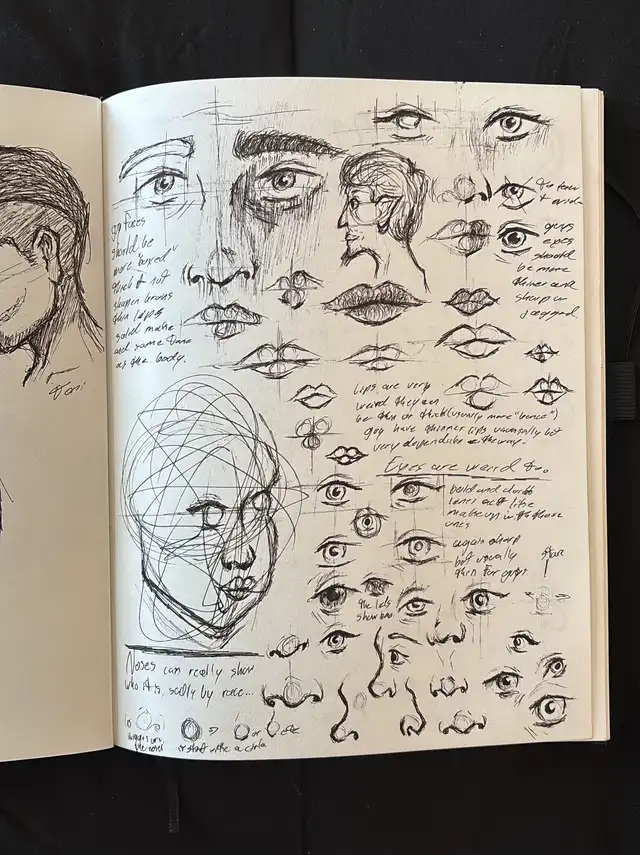 guy faces
should be
more "boxed"
thick & not
shapen brows
thin lips
solid make
and same tone
as the body.
guys
eyes
should
be more
thiner and
sharp or
jaggad
Lips are very
weird they can
be thin or thick (usually more
guy have thinner lips usually but
very dependube
Eyes are weird too
bold and
lines act like
makeup in
ones
again sharp
but usually
thin for guys
Noses can really show
who it is, sadly by race...
or start with a circle